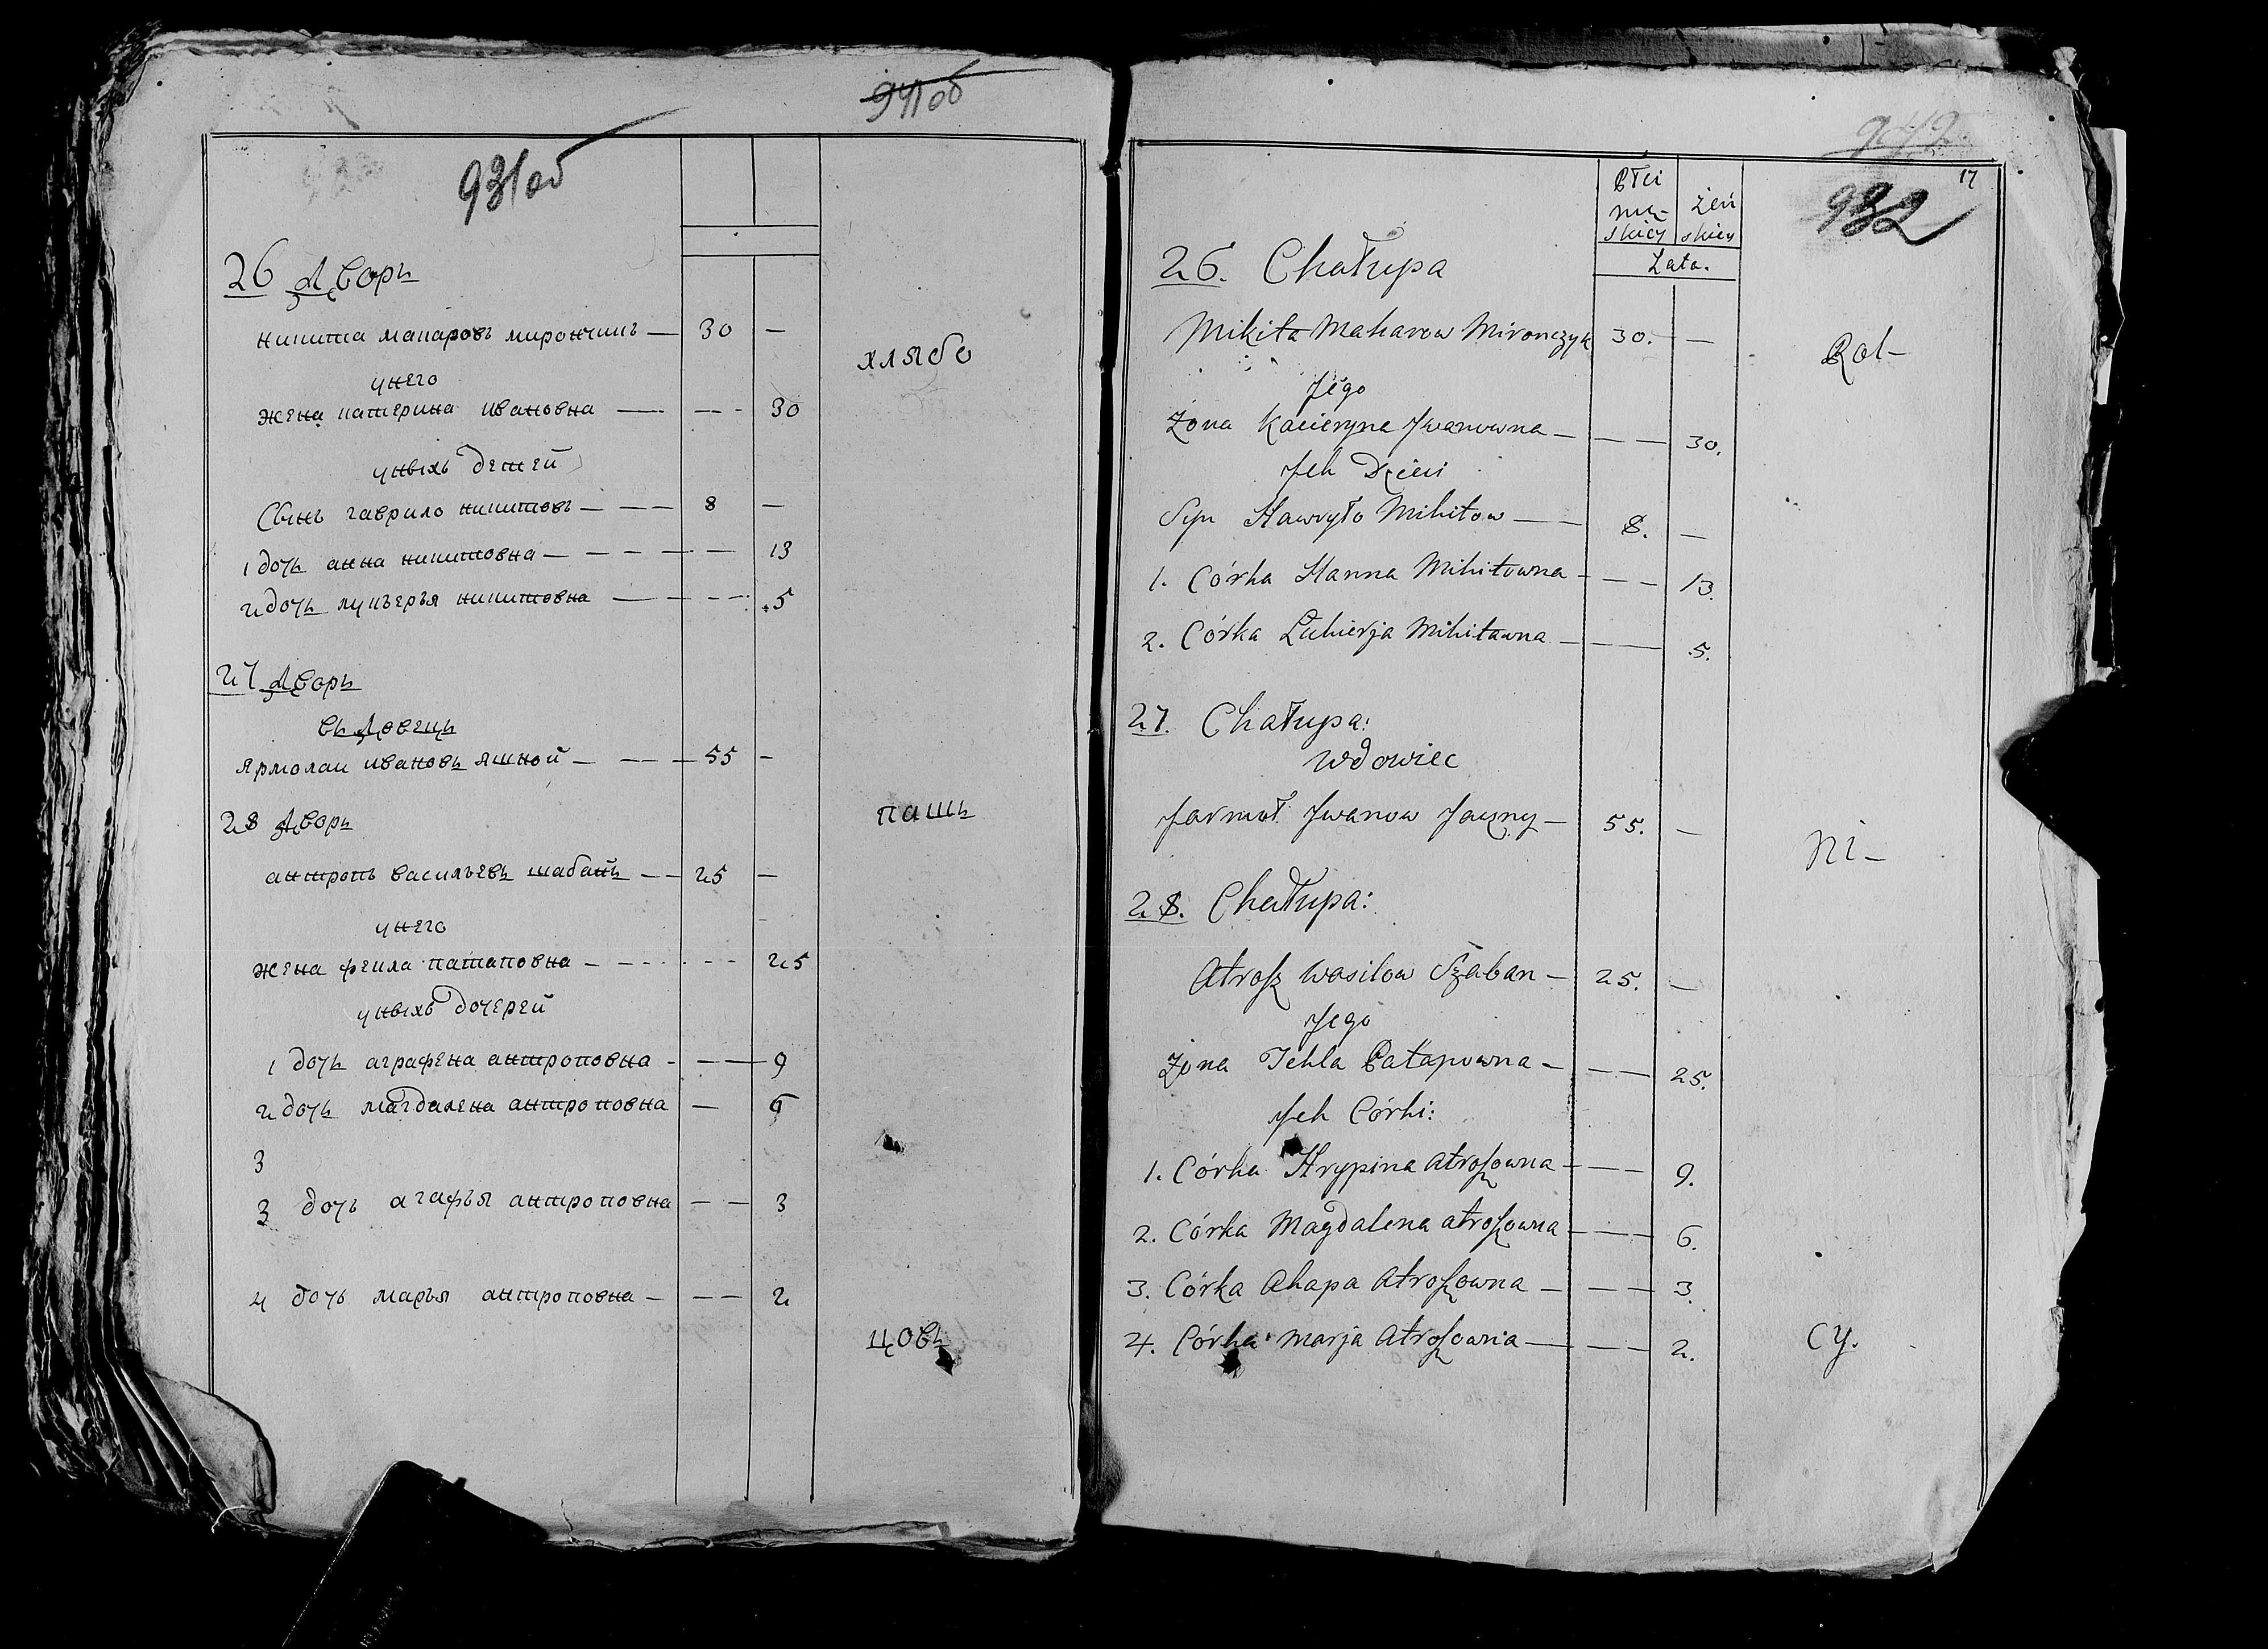 941об
931об
26 Дворъ
никита макаровъ мирончикъ — 30 —
унего
жена катерина ивановна — — 30
унихъ детей
Сынъ гаврило никитовъ — 8 —
1 дочь анна никитовна — — 13
2 дочь лукъерья никитовна — — 5
хлѣбо
27 Дворъ
вдовецъ
ярмолаи ивановъ яшной — 55 —
28 Дворъ
пашъ
антропъ васильевъ шабанъ — 25 —
унего
жена фекла патаповна — — 25
унихъ дочерей
1 дочь аграфена антроповна — — 9
2 дочь магдалена антроповна — 6
3
3 дочь агафья антроповна — — 3
4 дочь марья антроповна — — 2
цовъ
942
932
17
Płci
mę-skiey żeń skiey
Lata.
26. Chałupa
Mikita Makarow Mironczyk 30. —
Rol-
Jego
Żona Kacieryna Jwanowna — — 30.
Jch Dzieci
Syn Hawryło Mikitow — 8. —
1. Córka Hanna Mikitowna — — 13.
2. Córka Łukierja Mikitowna — — 5.
27. Chałupa:
Wdowiec
Jarmoł Jwanow Jaszny — 55. —
Ni-
28. Chałupa:
Atrosz Wasilow Szaban — 25. —
Jego
Żona Tekla Patapowna — — 25.
Jch Córki:
1. Córka Hrypina Atroszowna — — 9.
2. Córka Magdalena atroszowna — — 6.
3. Córka Ahapa Atroszowna — — 3.
4. Córka Marja Atroszowna — — 2.
cy.